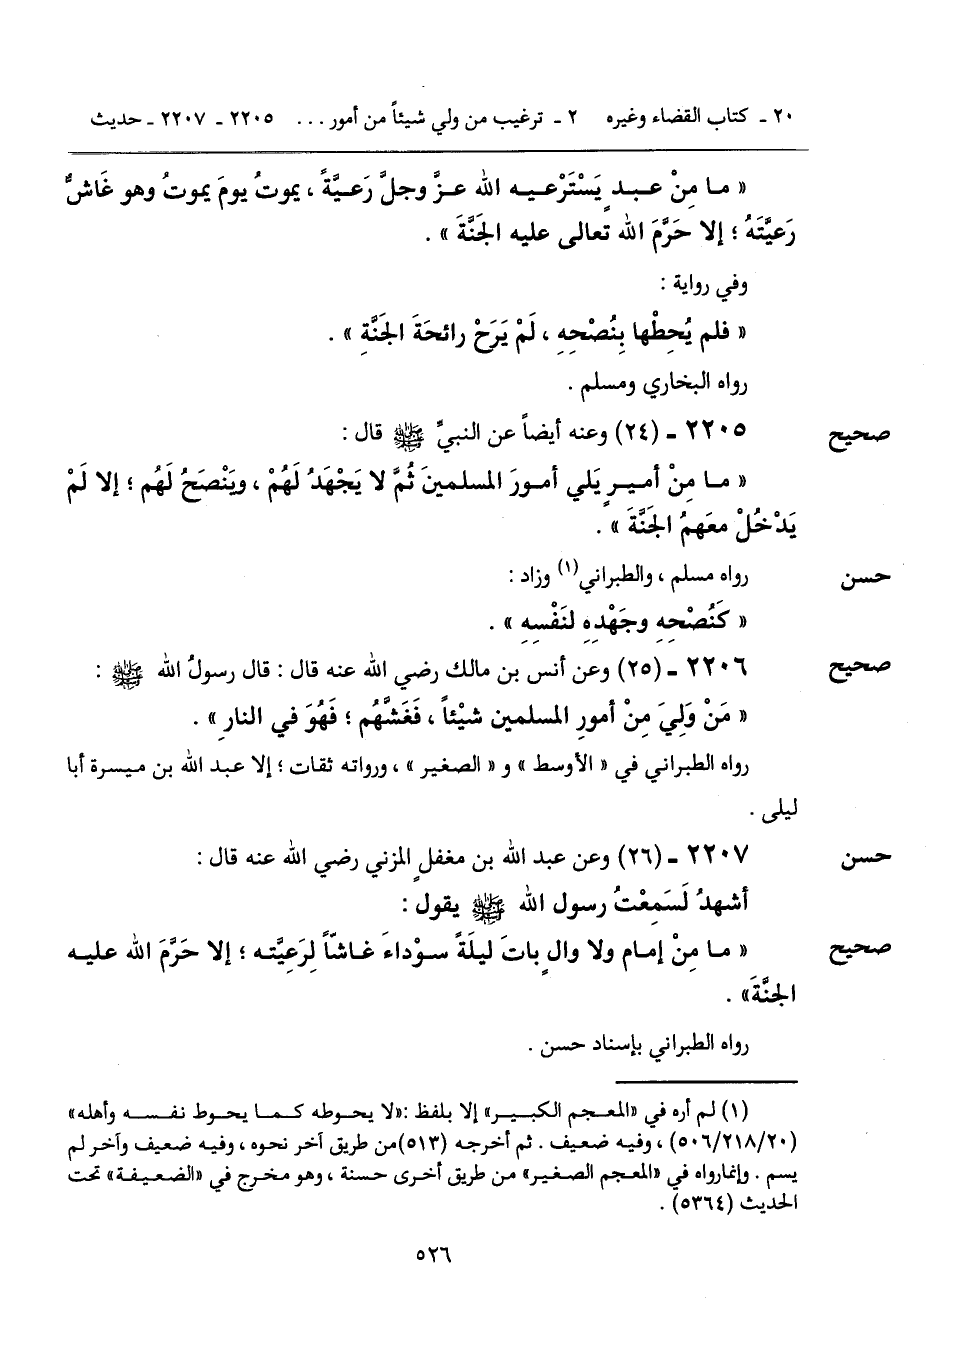 ٢٠ ـ كتاب القضاء وغيره ٢ ـ ترغيب من ولي شيئاً من أمور ... ٢٢٠٥ ـ ٢٢٠٧ ـ حديث
« ما مِنْ عبدٍ يَسْتَرْعيه اللهُ عزَّ وجلَّ رَعيَّةً ، يموتُ يومَ يموتُ وهو غَاشٌّ
رَعيَّتَهُ ؛ إلا حَرَّمَ اللهُ تعالى عليه الجَنَّةَ » .
وفي رواية :
« فلم يُحِطْها بِنُصْحِهِ ، لَمْ يَرَحْ رائحَةَ الجَنَّةِ » .
رواه البخاري ومسلم .
صحيح ٢٢٠٥ ـ (٢٤) وعنه أيضاً عن النبيِّ ﷺ قال :
« ما مِنْ أميرٍ يَلي أمورَ المسلمينَ ثُمَّ لا يَجْهَدُ لَهُمْ ، ويَنْصَحُ لَهُم ؛ إلا لَمْ
يَدْخُلْ معَهمُ الجَنَّةَ » .
حسن رواه مسلم ، والطبراني(١) وزاد :
« كَنُصْحِهِ وجَهْدِهِ لنَفْسِهِ » .
صحيح ٢٢٠٦ ـ (٢٥) وعن أنس بن مالك رضي الله عنه قال : قال رسولُ الله ﷺ :
« مَنْ وَلِيَ مِنْ أمورِ المسلمين شيْئاً ، فَغَشَّهُم ؛ فَهُوَ في النارِ » .
رواه الطبراني في « الأوسط » و « الصغير » ، ورواته ثقات ؛ إلا عبد الله بن ميسرة أبا
ليلى .
حسن ٢٢٠٧ ـ (٢٦) وعن عبد الله بن مغفلٍ المزني رضي الله عنه قال :
أشهدُ لَسَمِعْتُ رسول اللهِ ﷺ يقول :
صحيح « ما مِنْ إمام ولا والٍ باتَ ليلَةً سوْداءَ غاشّاً لِرَعِيَّته ؛ إلا حَرَّمَ الله عليه
الجنَّةَ» .
رواه الطبراني بإسناد حسن .
(١) لم أره في «المعجم الكبير» إلا بلفظ :«لا يحوطه كما يحوط نفسه وأهله»
(٥٠٦/٢١٨/٢٠) ، وفيه ضعيف . ثم أخرجه (٥١٣)من طريق آخر نحوه ، وفيه ضعيف وآخر لم
يسم . وإنمارواه في «المعجم الصغير» من طريق أخرى حسنة ، وهو مخرج في «الضعيفة» تحت
الحديث (٥٣٦٤) .
٥٢٦